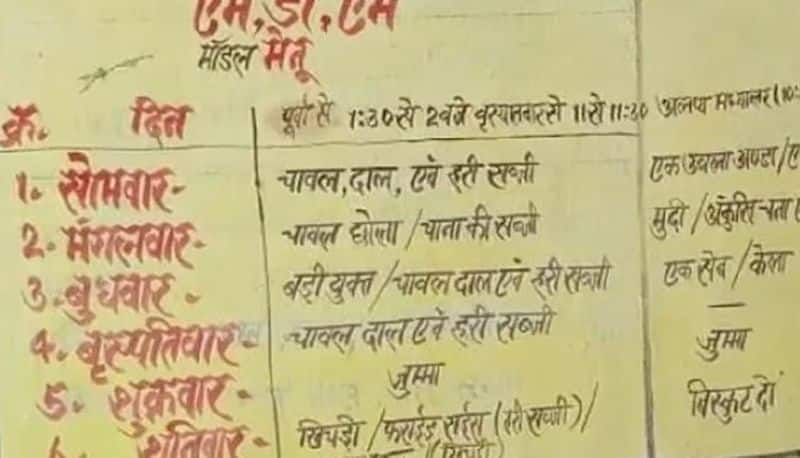 एम. डी. एम
मॉडल मेनू
क्रं. दिन पूर्वा से 1:30 से 2 बजे वृस्पातवार से 11 से 11:30 अल्पा मध्यान्तर (10:
1. सोमवार - चावल, दाल, एवं हरी सब्जी एक उबला अण्डा /
2. मंगलवार - चावल छोला / चाना की सब्जी मुढ़ी / अंकुरित चना
3. बुधवार - बड़ी युक्त / चावल दाल एवं हरी सब्जी एक सेव / केला
4. बृस्पतिवार - चावल, दाल एवं हरी सब्जी —
5. शुक्रवार - जुम्मा जुम्मा
शनिवार - खिचड़ी / फराईड राईस (हरी सब्जी) / बिस्कुट दो